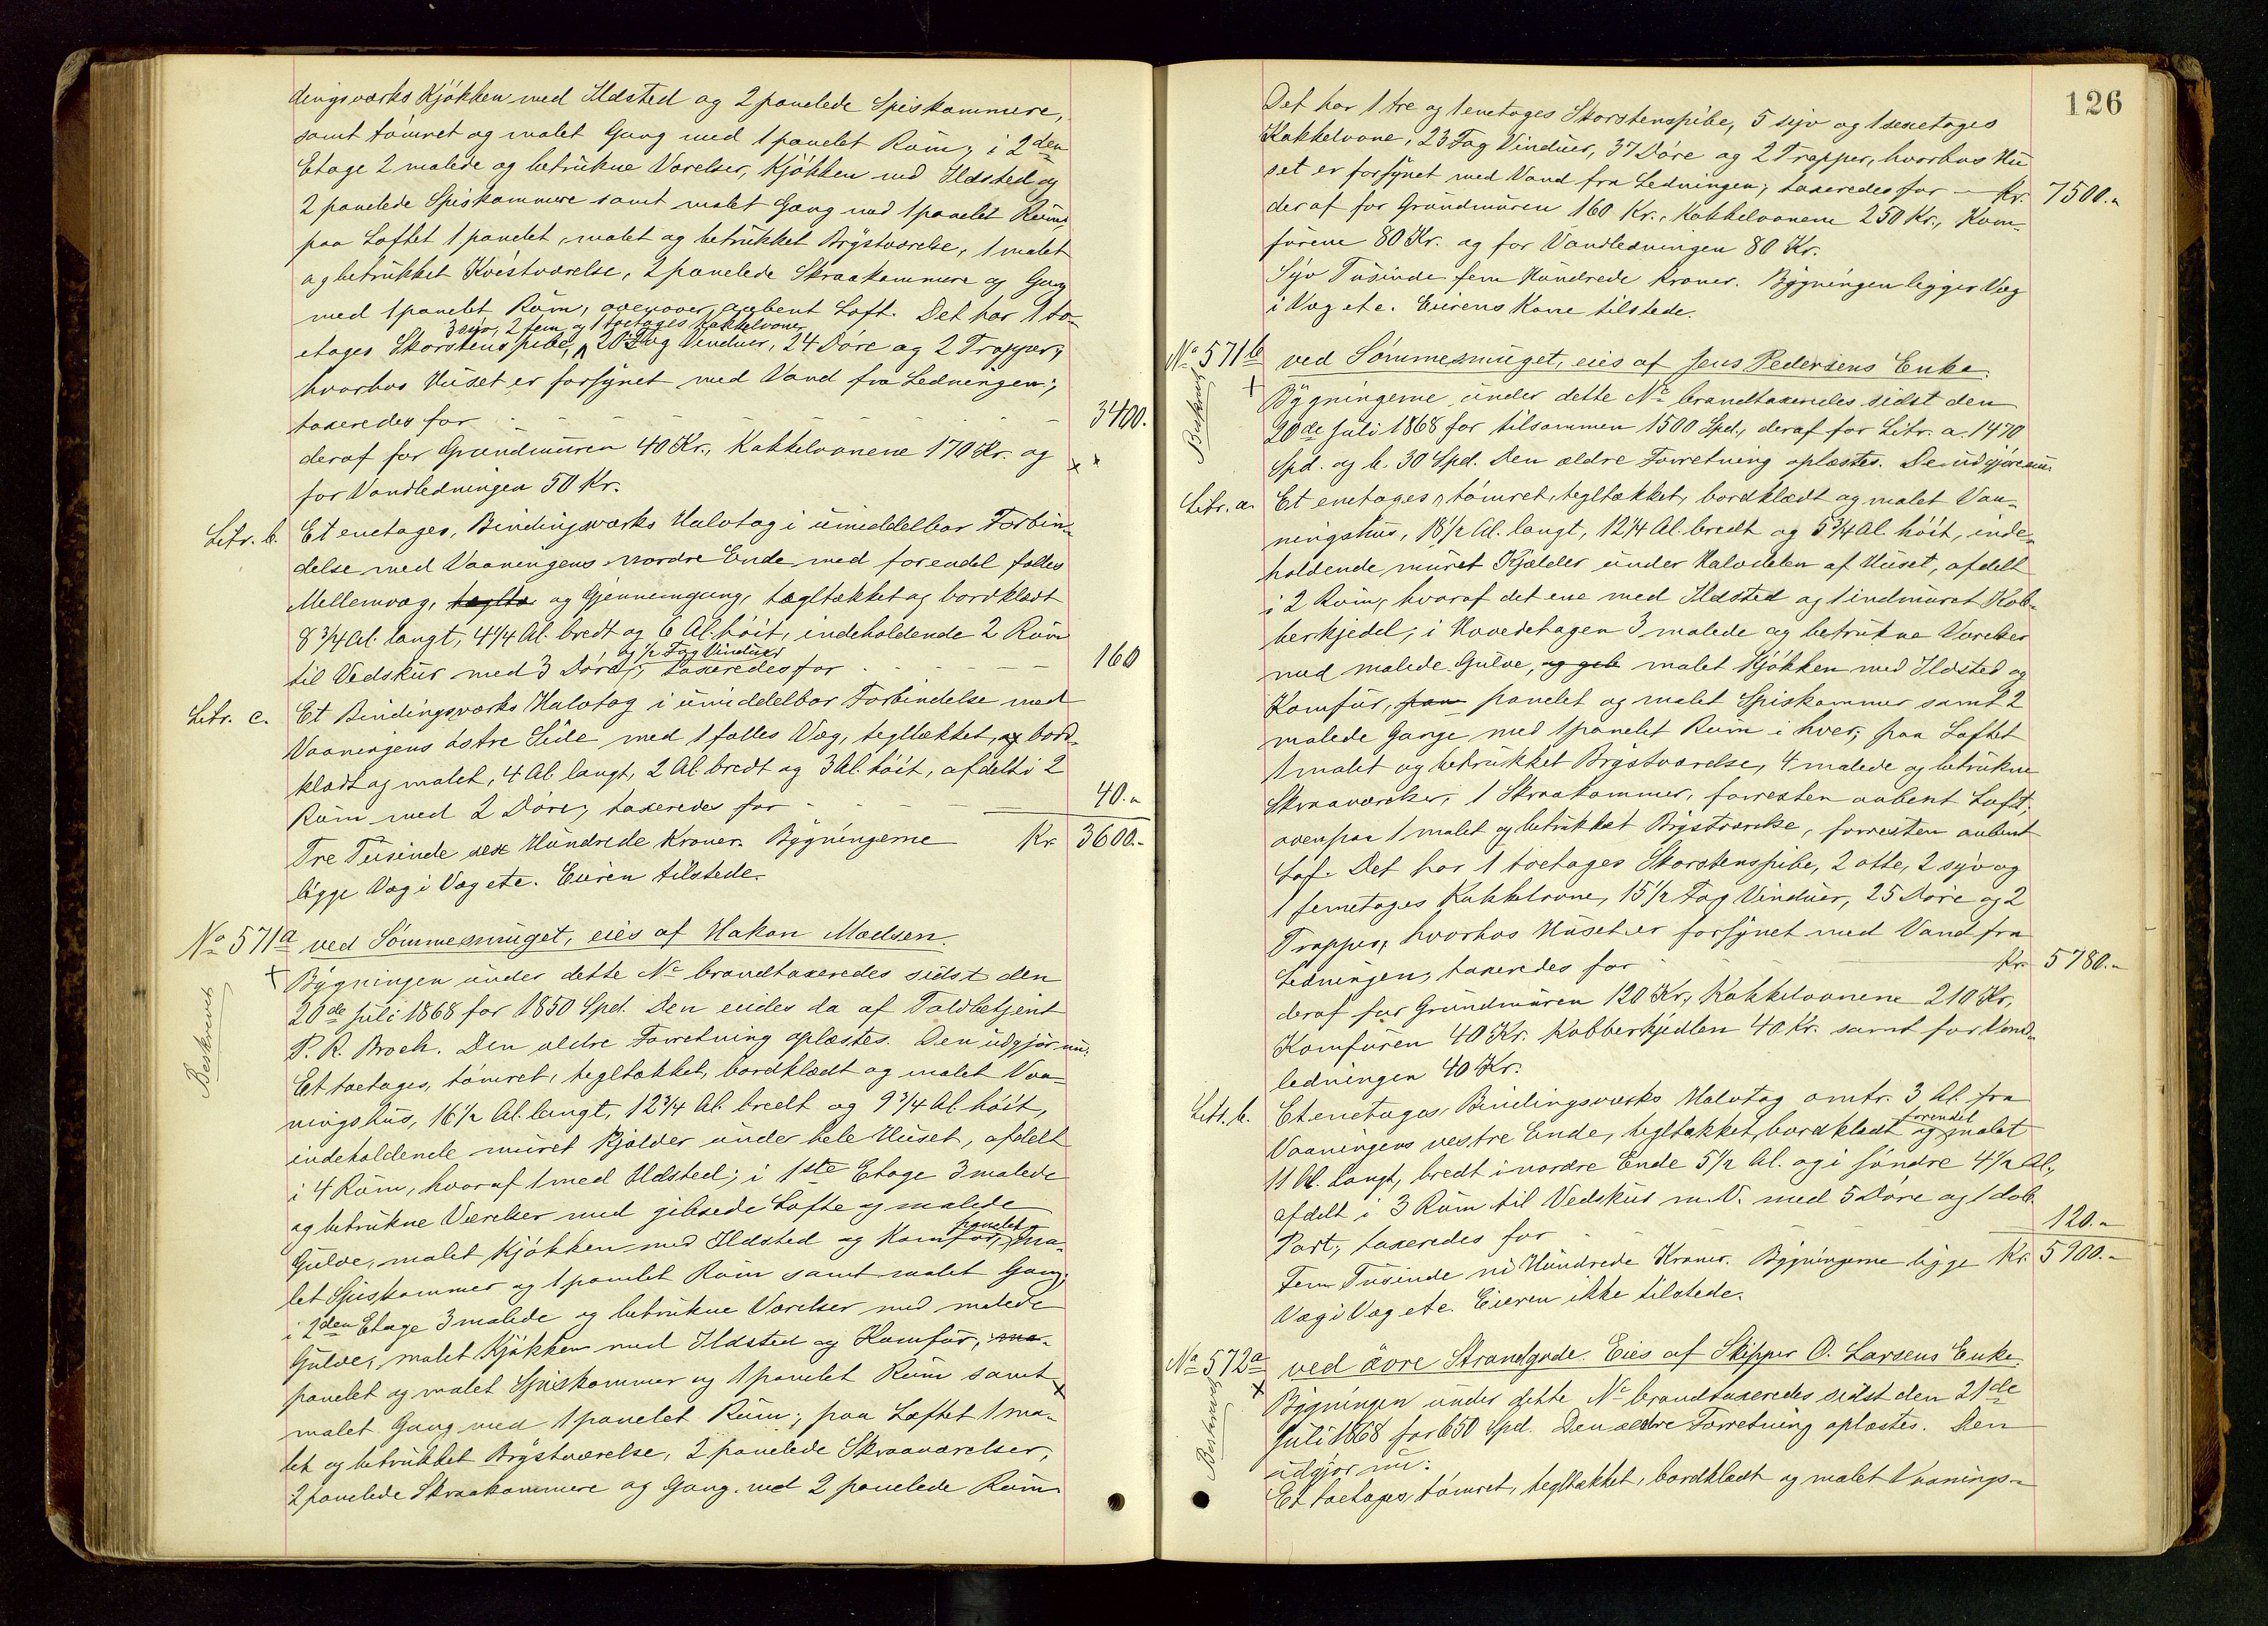 dingsværks Kjökken med Ildsted og 2 panelede Spiskammere,
samt tömret og malet Gang med 1 panelet Rüm; i 2den
Etage 2 malede og betrükne Værelser, Kjökken med Ildsted og
2 panelede Spiskammere samt malet Gang med 1 panelet Rüm;
paa Loftet 1 panelet, malet og betrükket Brÿstværelse, 1 malet
og betrükket Kvistværelse, 2 panelede Skraakammere og Gang
med 1 panelet Rüm, ovenover aabent Loft. Det har 1 to-
3 syv, 2 fem og 1 toetages Kakkelovne
etages Skorstenspibe, 20 Fag Vindüer, 24 Döre og 2 Trapper,
hvorhos Hüset er forsÿnet med Vand fra Ledningen;
taxeredes for - - - 3400.
deraf for Gründmüren 40 Kr., Kakkelovnene 170 Kr. og
for Vandledningen 50 Kr.
Litr. b. Et enetages, Bindingsværks Halvtag i ümiddelbar Forbin-
delse med Vaaningens nordre Ende med forendel fælles
Mellemvæg, teglta og Gjennemgang, tægltækket og bordklædt
8 3/4 Al. langt, 4 1/4 Al. bredt og 6 Al. höit, indeholdende 2 Rüm
og 1/2 Fag Vindüer
til Vedskür med 3 Döre; taxeredes for - - - 160
Litr. c. Et Bindingsværks Halvtag i ümiddelbar Forbindelse med
Vaaningens östre Side med 1 fælles Væg, tegltækket, og bord-
klædt og malet, 4 Al. langt, 2 Al. bredt og 3 Al. höit, afdelt i 2
Rüm med 2 Döre; taxeredes for - - - 40.-
Tre Tüsinde sex Hündrede Kroner. Bÿgningerne Kr. 3600.-
ligge Væg i Væg etc. Eieren tilstede.
No 571a ved Sömmesmüget, eies af Hakon Madsen.
Beskrevet
Bÿgningen ünder dette No brandtaxeredes sidst den
20de Juli 1868 for 1850 Spd. Den eiedes da af Toldbetjent
P. R. Broch. Den ældre Forretning oplæstes. Den üdgjör nü:
Et toetages, tömret, tegltækket, bordklædt og malet Vaa-
ningshüs, 16 1/2 Al. langt, 12 3/4 Al. bredt og 9 3/4 Al. höit,
indeholdende müret Kjælder ünder hele Hüset, afdelt
i 4 Rüm, hvoraf 1 med Ildsted; i 1ste Etage 3 malede
og betrükne Værelser med gibsede Lofte og malede
Gülve, malet Kjökken med Ildsted og Komfür, panelet ma-
let Spiskammer og 1 panelet Rüm samt malet Gang;
i 2den Etage 3 malede og betrükne Værelser med malede
Gülve, malet Kjökken med Ildsted og Komfür, ma-
panelet og malet Spiskammer og 1 panelet Rüm samt
malet Gang med 1 panelet Rüm; paa Loftet 1 ma-
let og betrükket Brÿstværelse, 2 panelede Skraaværelser,
2 panelede Skraakammere og Gang med 2 panelede Rüm
126
Det har 1 tre og 1 enetages Skorstenspibe, 5 syv og 1 sexetages
Kakkelovne, 23 Fag Vindüer, 37 Döre og 2 Trapper, hvorhos Hü
set er forsÿnet med Vand fra Ledningen; taxeredes for - Kr. 7500.-
deraf for Gründmüren 160 Kr., Kakkelovnene 250 Kr., Kom-
fürene 80 Kr. og for Vandledningen 80 Kr.
Sÿv Tüsinde fem Hündrede Kroner. Bÿgningen ligger Væg
i Væg etc. Eierens Kone tilstede.
No 571b ved Sömmesmüget, eies af Jens Pedersens Enke.
Beskrevet
Bÿgningerne ünder dette No brandtaxeredes sidst den
20de Juli 1868 for tilsammen 1500 Spd., deraf for Litr. a. 1470
Spd. og b. 30 Spd. Den ældre Forretning oplæstes. De üdgjöre nü:
Litr. a. Et enetages, tömret, tegltækket, bordklædt og malet Vaa-
ningshüs, 18 1/2 Al. langt, 12 1/4 Al. bredt og 5 3/4 Al. höit, inde-
holdende müret Kjælder ünder Halvdelen af Hüset, afdelt
i 2 Rüm, hvoraf det ene med Ildsted og 1 indmüret Kob-
berkjedel; i Hovedetagen 3 malede og betrükne Værelser
med malede Gülve, og gib malet Kjökken med Ildsted og
Komfür, pan panelet og malet Spiskammer samt 2
malede Gange med 1 panelet Rüm i hver; paa Loftet
1 malet og betrükket Brÿstværelse, 4 malede og betrükne
Skraaværelser, 1 Skraakammer, forresten aabent Loft;
ovenpaa 1 malet og betrükket Brÿstværelse, forresten aabent
Lof. Det har 1 toetages Skorstenspibe, 2 otte, 2 syv og
1 femetages Kakkelovne, 15 1/2 Fag Vindüer, 25 Döre og 2
Trapper, hvorhos Hüset er forsÿnet med Vand fra
Ledningen; taxeredes for - - Kr. 5780.-
deraf for Gründmüren 120 Kr., Kakkelovnene 210 Kr,
Komfüren 40 Kr. Kobberkjedlen 40 Kr. samt for Vand-
ledningen 40 Kr.
Litr. b. Et enetages Bindingsværks Halvtag omtr. 3 Al. fra
Vaaningens vestre Ende, tegltækket, bordklædt og forendel malet
11 Al. langt, bredt i nordre Ende 5 1/2 Al. og i söndre 4 1/2 Al.,
afdelt i 3 Rüm til Vedskür m. V. med 5 Döre og 1 dob.
Port; taxeredes for - - - 120.-
Fem Tüsinde ni Hündrede Kroner. Bÿgningerne ligge Kr. 5900.-
Væg i Væg etc. Eieren ikke tilstede.
No 572a ved övre Strandgade. Eies af Skipper O. Larsens Enke.
Beskrevet
Bÿgningen ünder dette No brandtaxeredes sidst den 21de
Juli 1868 for 650 Spd. Den ældre Forretning oplæstes. Den
üdgjör nü:
Et toetages, tömret, tegltækket, bordklædt og malet Vaanings-